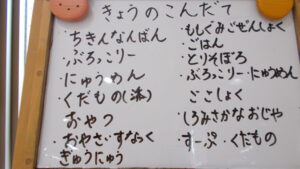 きょうのこんだて
・ちきんなんばん
・ぶろっこりー
・にゅうめん
・くだもの
おやつ
・おやさいすなっく
ぎゅうにゅう
・ももぐみごぜんしょく
・ごはん
・とりそぼろ
・ぶろっこりー・にゅうめん
ごごしょく
・しろみさかなおじや
・すーぷ・くだもの